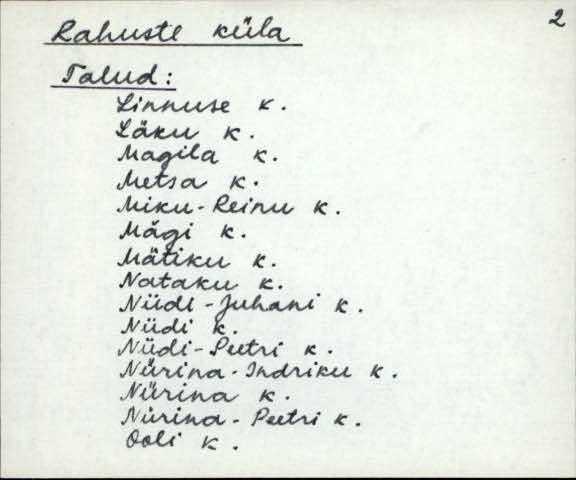 2
Rahuste küla
Talud:
Linnuse k.
Läku k.
Magila k.
Metsa k.
Miku-Reinu k.
Mägi k.
Mätiku k.
Nataku k.
Nüdi-Juhani k.
Nüdi k.
Nüdi-Peetri k.
Nürina-Indriku k.
Nürina k.
Nürina-Peetri k.
Ooli k.